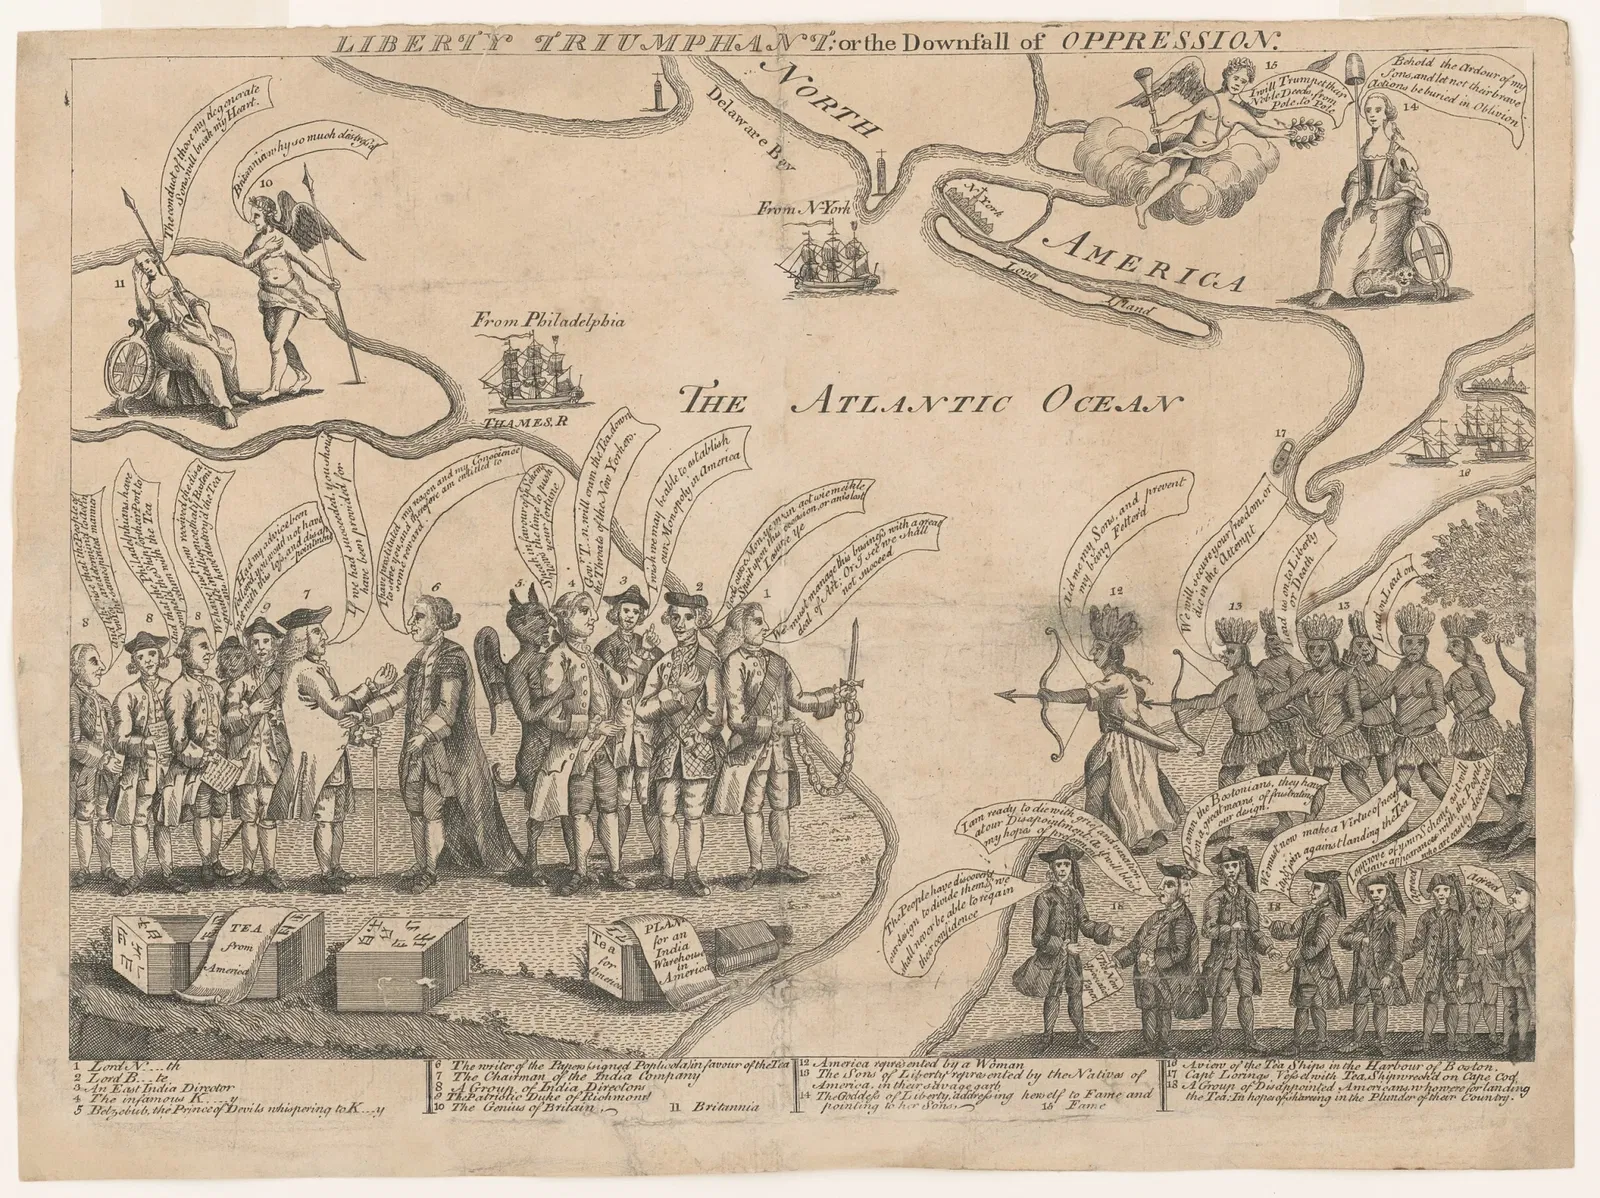 LIBERTY TRIUMPHANT; or the Downfall of OPPRESSION.
The conduct of those my degenerate
Sons, will break my Heart.
Britannia why so much distress'd
10
11
Delaware Bay
NORTH
AMERICA
N. York
Long Island
From N-York
From Philadelphia
THAMES. R
THE ATLANTIC OCEAN
15
I will Trumpet their
Noble Deeds, from
Pole, to Pole.
14
Behold the Ardour of my
Sons, and let not their brave
Actions be buried in Oblivion
17
16
8
8
8
9
Had my advice been
followed you would not have
met with this loss, and disap-
pointment
7
If we had succeeded, you should
have been provided for
6
I have prostituted my reason and my Conscience
to serve you, and therefore am entitled to
some reward
5
4
Gov. T__n, will cram the Tea down
the Throats of the New Yorkers.
3
I wish we may be able to establish
our Monopoly in America
2
1
We must manage this business with a great
deal of Art. Or I see we shall
not succeed
12
Aid me my Sons, and prevent
my being Fetter'd
13
We will secure your freedom, or
die in the Attempt
Lead us on to Liberty
or Death
13
Lead on Lead on
TEA
from
America
Tea
for
America
PLAN
for an
India
Warehouse
in
America
I am ready to die with grief and vexation,
at our Disapointment
my hopes of
The People have discover'd
our design to divide them, & we
shall never be able to regain
their confidence
18
18
damn the Bostonians, they have
been a good means of frustrating
our design.
We must now make a Virtue of necessity
against landing the Tea
I approve of your Scheme, as it will
have appearances with the People
who are easily deceived
Agreed
Agreed
1 Lord N....th
2 Lord B...te.
3 An East India Director
4 The infamous K.....y
5 Belzebub, the Prince of Devils whispering to K...y
6 The writer of the Papers signed Poplicola in favour of the Tea
7 The Chairman of the India Company
8 A Group of India Directors
9 The Patriotic Duke of Richmond
10 The Genius of Britain 11 Britannia
12 America represented by a Woman
13 The Sons of Liberty represented by the Natives of
America, in their savage garb
14 The Goddess of Liberty, addressing herself to Fame and
pointing to her Sons 15 Fame
16 A view of the Tea Ships in the Harbour of Boston.
17 Capt Lorings Vessel with Tea, Shipwreck'd on Cape Cod
18 A Group of Disappointed Americans, who were for landing
the Tea: In hopes of sharing in the Plunder of their Country.